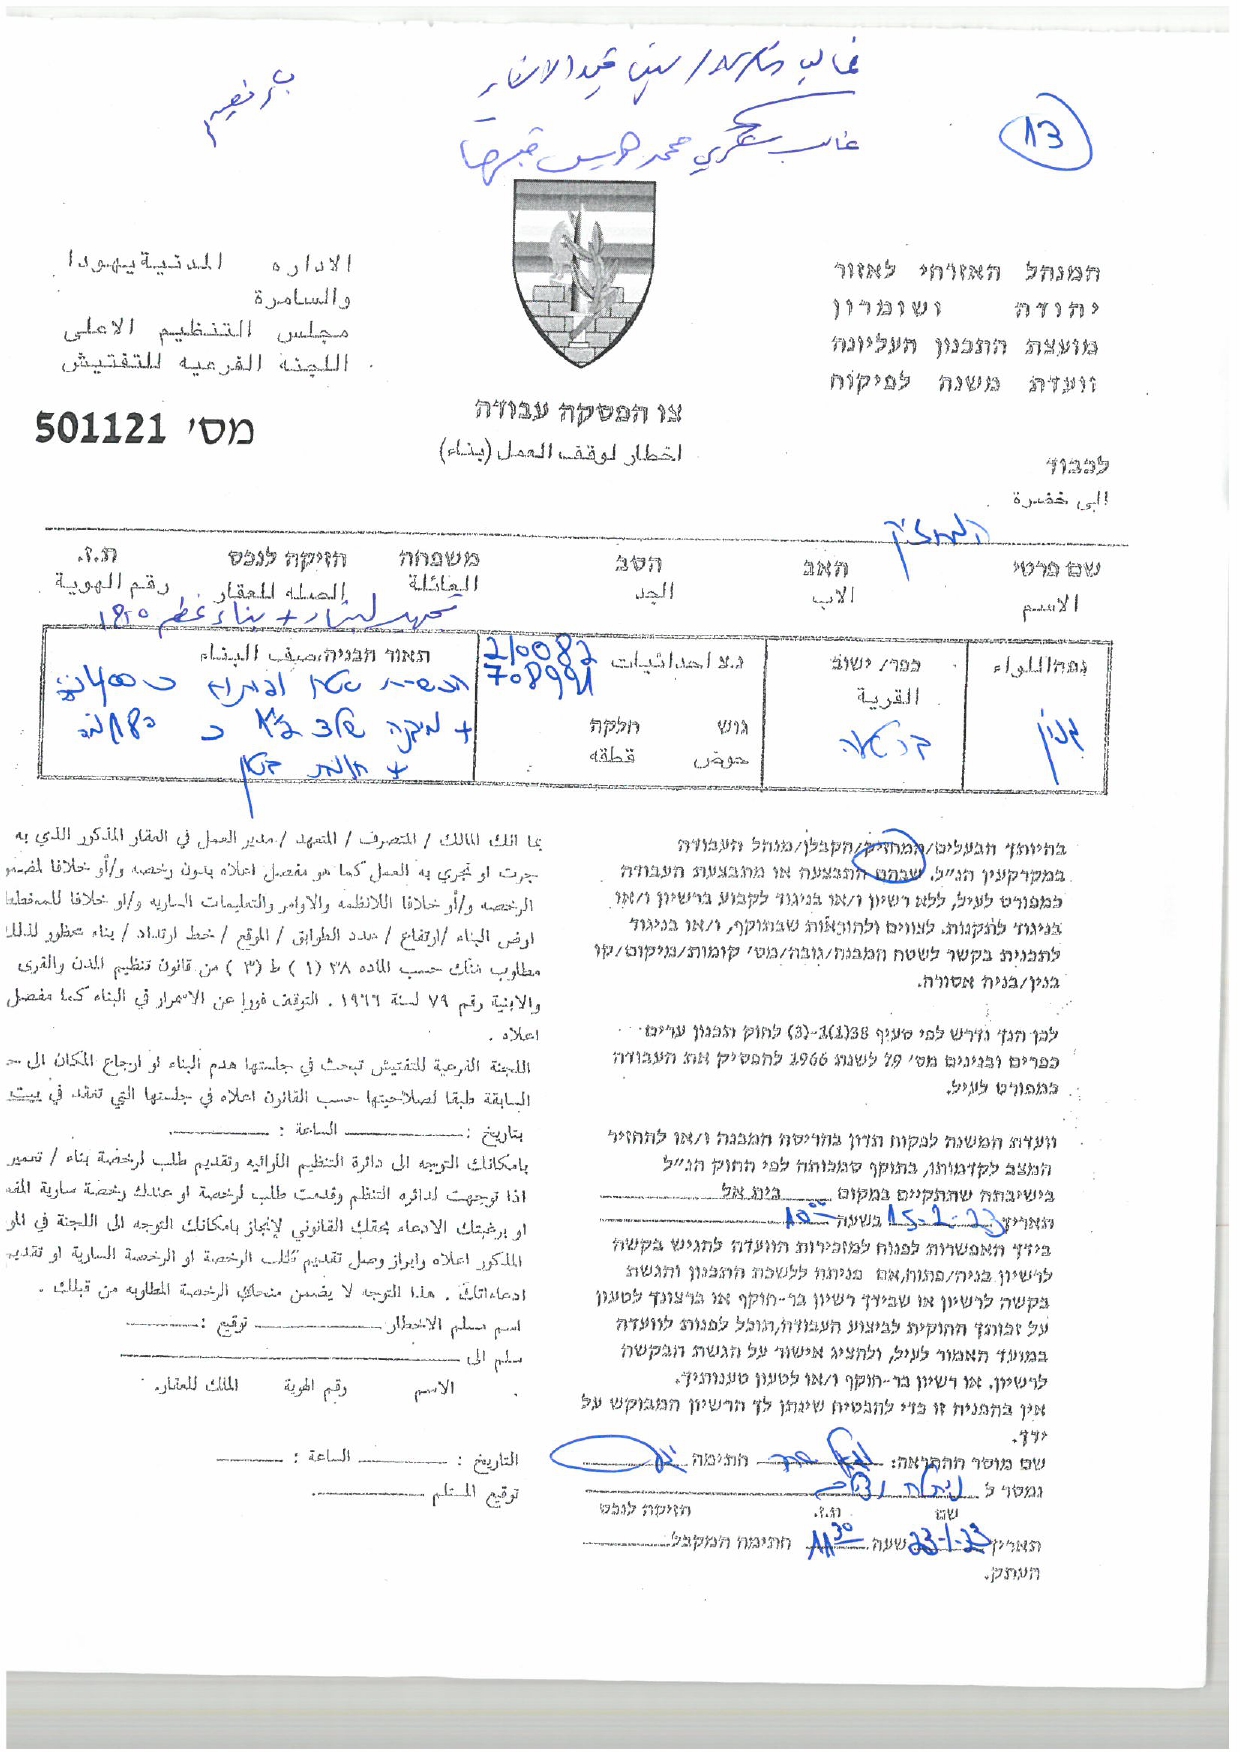 13
غالب
המנהל האזרחי לאזור
יהודה ושומרון
מועצת התכנון העליונה
וועדת משנה לפיקוח
الاداره المدنية يهودا
والسامرة
مجلس التنظيم الاعلى
اللجنه الفرعيه للتفتيش
צו הפסקה עבודה
اخطار لوقف العمل (بناء)
מס' 501121
לכבוד
الى حضرة
המחזיק
שם פרטי האב הסב משפחה חזיקה לנכס ת.ז.
الاسم الاب الجد العائلة الصله للعقار رقم الهوية
נפה اللواء
ג'נין
כפר/ ישוב
القرية
ברטעה
נ.צ احداثيات 210082
708991
גוש חלקה
حوض قطعه
תאור הבניה، صيف البناء
הכשרת שטח
+ חומת בטון
בהיותך הבעלים/המחזיק/הקבלן/מנהל העבודה
במקרקעין הנ"ל. שבהם התבצעה או מתבצעת העבודה
כמפורט לעיל, ללא רשיון ו/או בניגוד לקבוע ברשיון ו/או
בניגוד לתקנות. לצווים ולהוראות שבתוקף, ו/או בניגוד
לתכנית בקשר לשטח המבנה/גובה/מס' קומות/מיקום/קו
בנין/בניה אסורה.
לכן הנך נדרש לפי סעיף 38(1)-(3) לחוק תכנון ערים
כפרים ובנינים מס' 79 לשנת 1966 להפסיק את העבודה
כמפורט לעיל.
וועדת המשנה לפקוח תדון בהריסת המבנה ו/או להחזיר
המצב לקדמותו, בתוקף סמכותה לפי החוק הנ"ל
בישיבתה שתתקיים במקום בית אל
תאריך 15-2-23 בשעה 10:00
בידך האפשרות לפנות למזכירות הוועדה להגיש בקשה
לרשיון בניה/פתוח,אם פניתה ללשכת התכנון והגשת
בקשה לרשיון או שבידך רשיון בר-חוקף או ברצונך לטעון
על זכותך החוקית לביצוע העבודה,תוכל לפנות לוועדה
במועד האמור לעיל, ולהציג אישור על הגשת הבקשה
לרשיון. או רשיון בר-חוקף ו/או לטעון טענותיך.
אין בהפניה זו כדי להבטיח שינתן לך הרשיון המבוקש על
ידך.
שם מוסר ההתראה: חתימה
נמסר ל
שם ת.ז. חזיקה לנכס
תאריך 23-1-23 שעה 11:30 חתימת המקבל
העתק.
بما انك المالك / المتصرف / المتعهد / مدير العمل في العقار المذكور الذي به
جرت او تجري به العمل كما هو مفصل اعلاه بدون رخصه و/أو خلافا
الرخصه و/أو خلافا اللانظمه والاوامر والتعليمات الساريه و/او خلافا
ارض البناء / ارتفاع / عدد الطوابق / الموقع / خط ارتداد / بناء محظور لذلك
مطلوب منك حسب الماده ٣٨ (١) ط (٣) من قانون تنظيم المدن والقرى
والابنية رقم ٧٩ لسنة ١٩٦٦ . التوقف فورا عن الاسمرار في البناء كما مفصل
اعلاه .
اللجنة الفرعية للتفتيش تبحث في جلستها هدم البناء او ارجاع المكان الى
السابقة طبقا لصلاحيتها حسب القانون اعلاه في جلستها التي تنعقد في بيت
بتاريخ : الساعة :
بامكانك التوجه الى دائرة التنظيم اللوائيه وتقديم طلب لرخصة بناء / تعمير
اذا توجهت لدائره التنظم وقدمت طلب لرخصة او عندك رخصة سارية
او برغبتك الادعاء بحقك القانوني لإنجاز بامكانك التوجه الى اللجنة في
المذكور اعلاه وابراز وصل تقديم طلب الرخصة او الرخصة السارية او تقديم
ادعاءاتك . هذا التوجه لا يضمن منحك الرخصة المطلوبه من قبلك .
اسم مسلم الاخطار توقيع :
سلم الى
الاسم رقم الهوية المالك للعقار.
التاريخ : الساعة :
توقيع المستلم